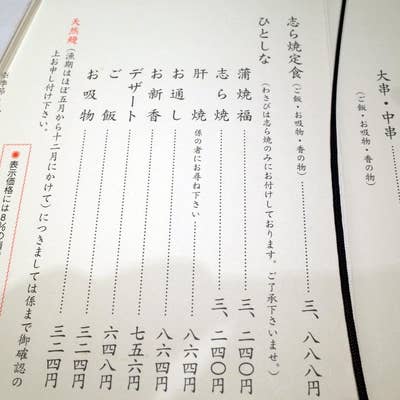 大串・中串
(ご飯・お吸物・香の物)
志ら焼定食(ご飯・お吸物・香の物)………三、八八八円
ひとしな(わさびは志ら焼のみにお付けしております。ご了承下さいませ。)
蒲焼福………三、二四〇円
志ら焼………三、二四〇円
肝焼 係の者にお尋ね下さい………八六四円
お通し………八六四円
お新香………八六四円
デザート………七五六円
ご飯………六四八円
お吸物………三二四円
天然鰻(漁期はほぼ五月から十二月にかけて)につきましては係まで御確認の
上お申し付け下さい。
表示価格には8%の